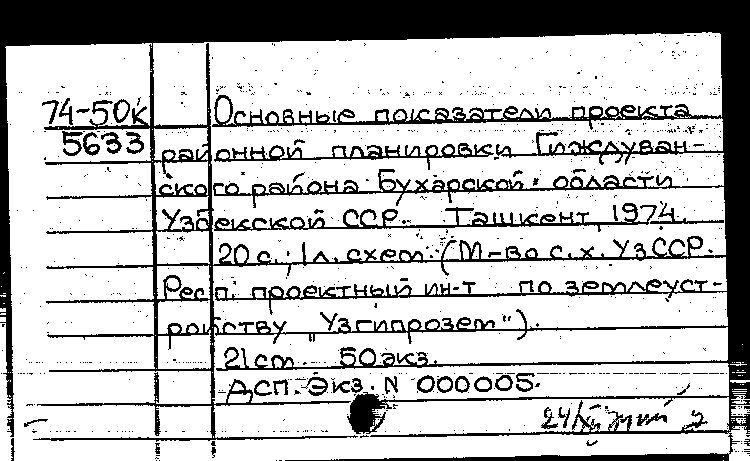 74-50к Основные показатели проекта
5633 районной планировки Гиждуван-
ского района Бухарской области
Узбекской ССР. Ташкент, 1974.
20 с.; 1 л. схем. (М-во с.х. УзССР.
Респ. проектный ин-т по землеуст-
ройству „Узгипрозем").
21 cm. 50 экз.
ДСП. Экз. N 000005.